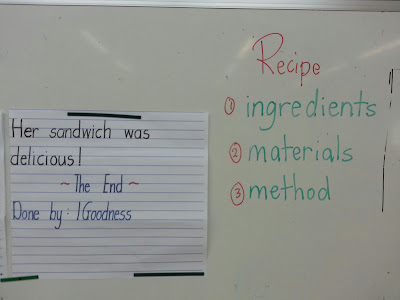 Her sandwich was
delicious!
~ The End ~
Done by: 1 Goodness
Recipe
① ingredients
② materials
③ method